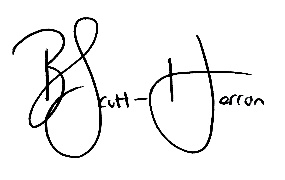 B Scott-Herron